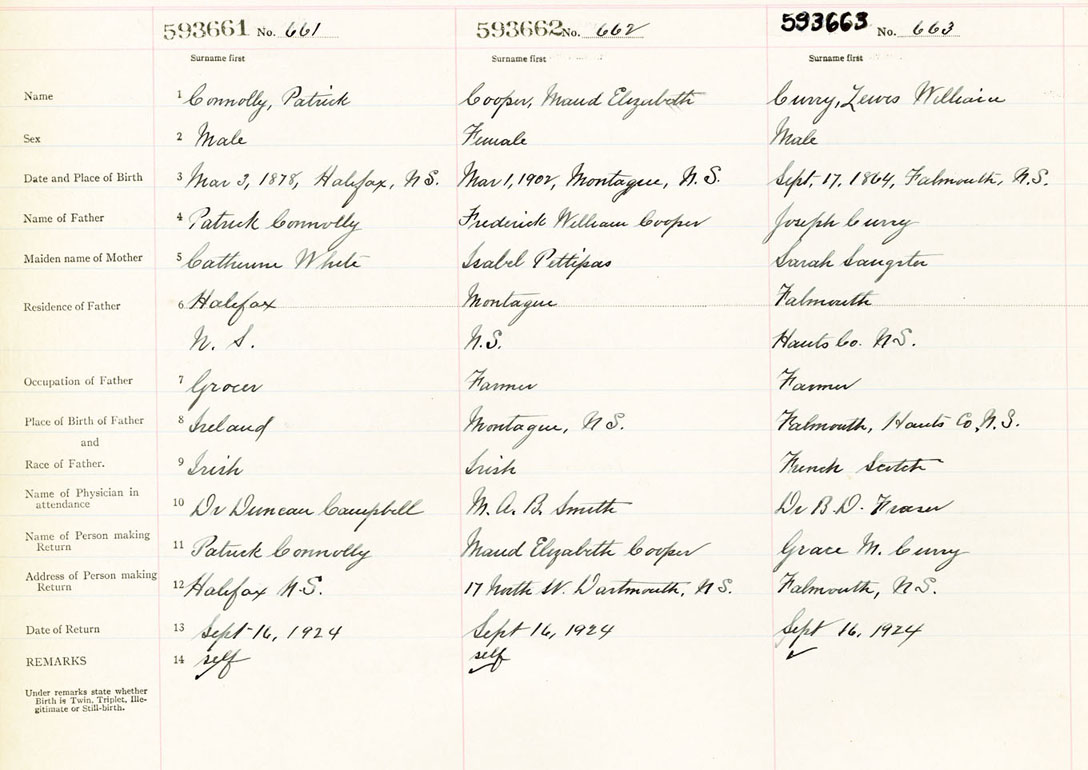 593661 No. 661 593662 No. 662 593663 No. 663
Surname first Surname first Surname first
Name 1 Connolly, Patrick Cooper, Maud Elizabeth Curry, Lewis William
Sex 2 Male Female Male
Date and Place of Birth 3 Mar 3, 1878, Halifax, N.S. Mar 1, 1902, Montague, N.S. Sept, 17, 1864, Falmouth, N.S.
Name of Father 4 Patrick Connolly Frederick William Cooper Joseph Curry
Maiden name of Mother 5 Catherine White Isabel Pettipas Sarah Sangster
Residence of Father 6 Halifax Montague Falmouth
N. S. N.S. Hants Co. N.S.
Occupation of Father 7 Grocer Farmer Farmer
Place of Birth of Father 8 Ireland Montague, N.S. Falmouth, Hants Co, N.S.
and
Race of Father. 9 Irish Irish French Scotch
Name of Physician in
attendance 10 Dr Duncan Campbell M. A. B. Smith Dr B. D. Fraser
Name of Person making
Return 11 Patrick Connolly Maud Elizabeth Cooper Grace M. Curry
Address of Person making
Return 12 Halifax N.S. 17 North St. Dartmouth, N.S. Falmouth, N.S.
Date of Return 13 Sept 16, 1924 Sept 16, 1924 Sept 16, 1924
REMARKS 14 self self
Under remarks state whether
Birth is Twin, Triplet, Ille-
gitimate or Still-birth.